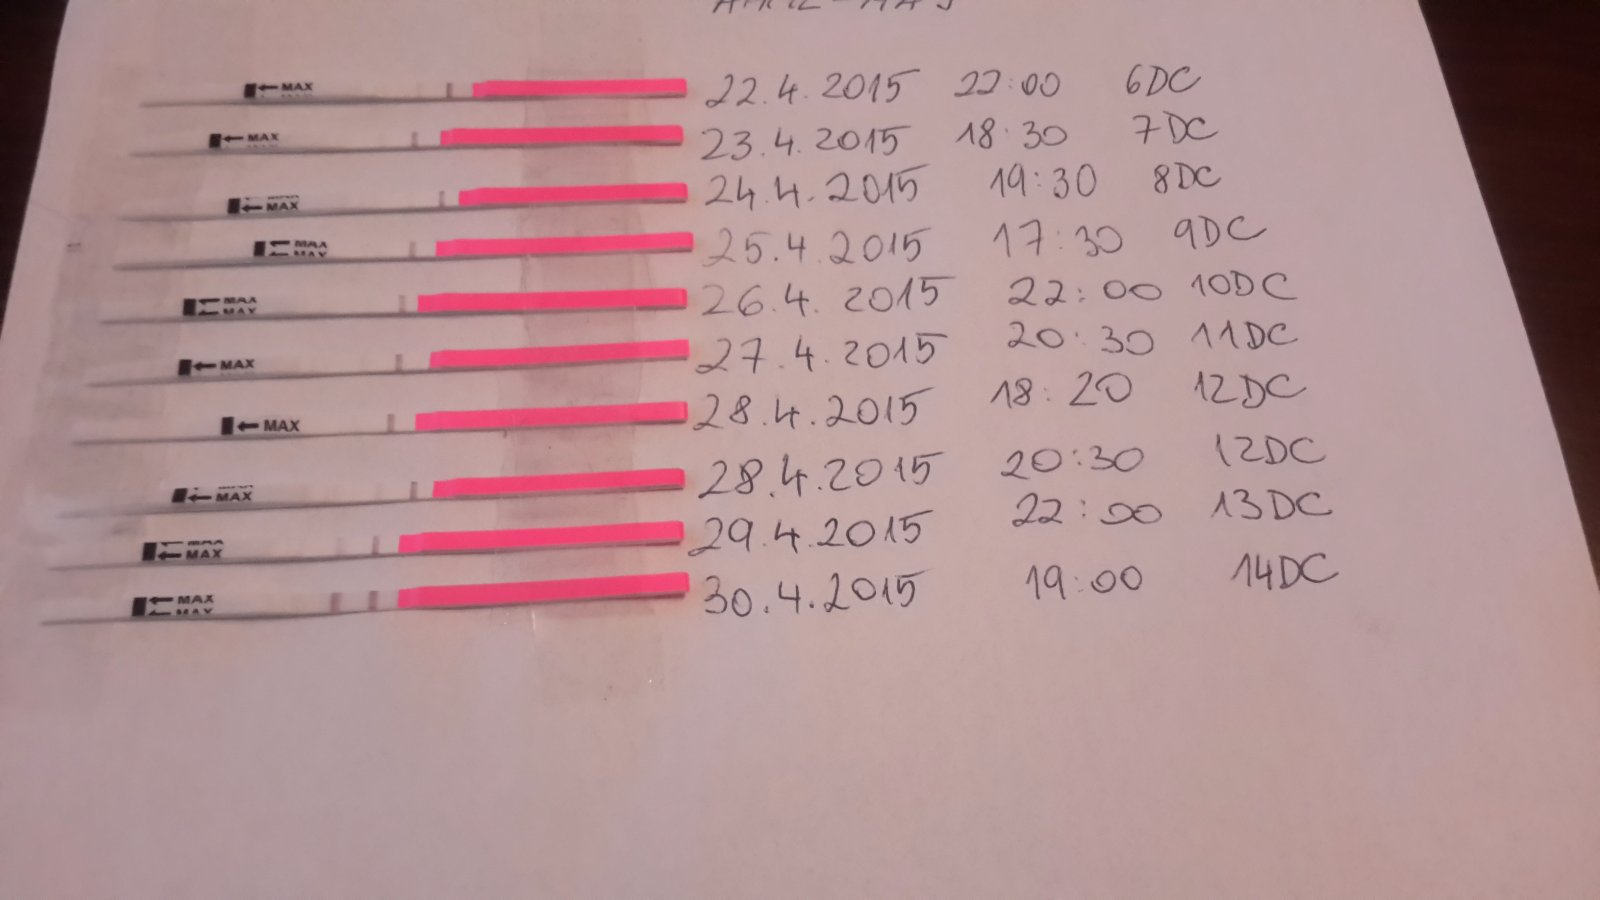 APRIL-MAJ
MAX 22.4.2015 22:00 6DC
MAX 23.4.2015 18:30 7DC
MAX 24.4.2015 19:30 8DC
MAX MAX 25.4.2015 17:30 9DC
MAX MAX 26.4.2015 22:00 10DC
MAX 27.4.2015 20:30 11DC
MAX 28.4.2015 18:20 12DC
MAX 28.4.2015 20:30 12DC
MAX MAX 29.4.2015 22:00 13DC
MAX MAX 30.4.2015 19:00 14DC